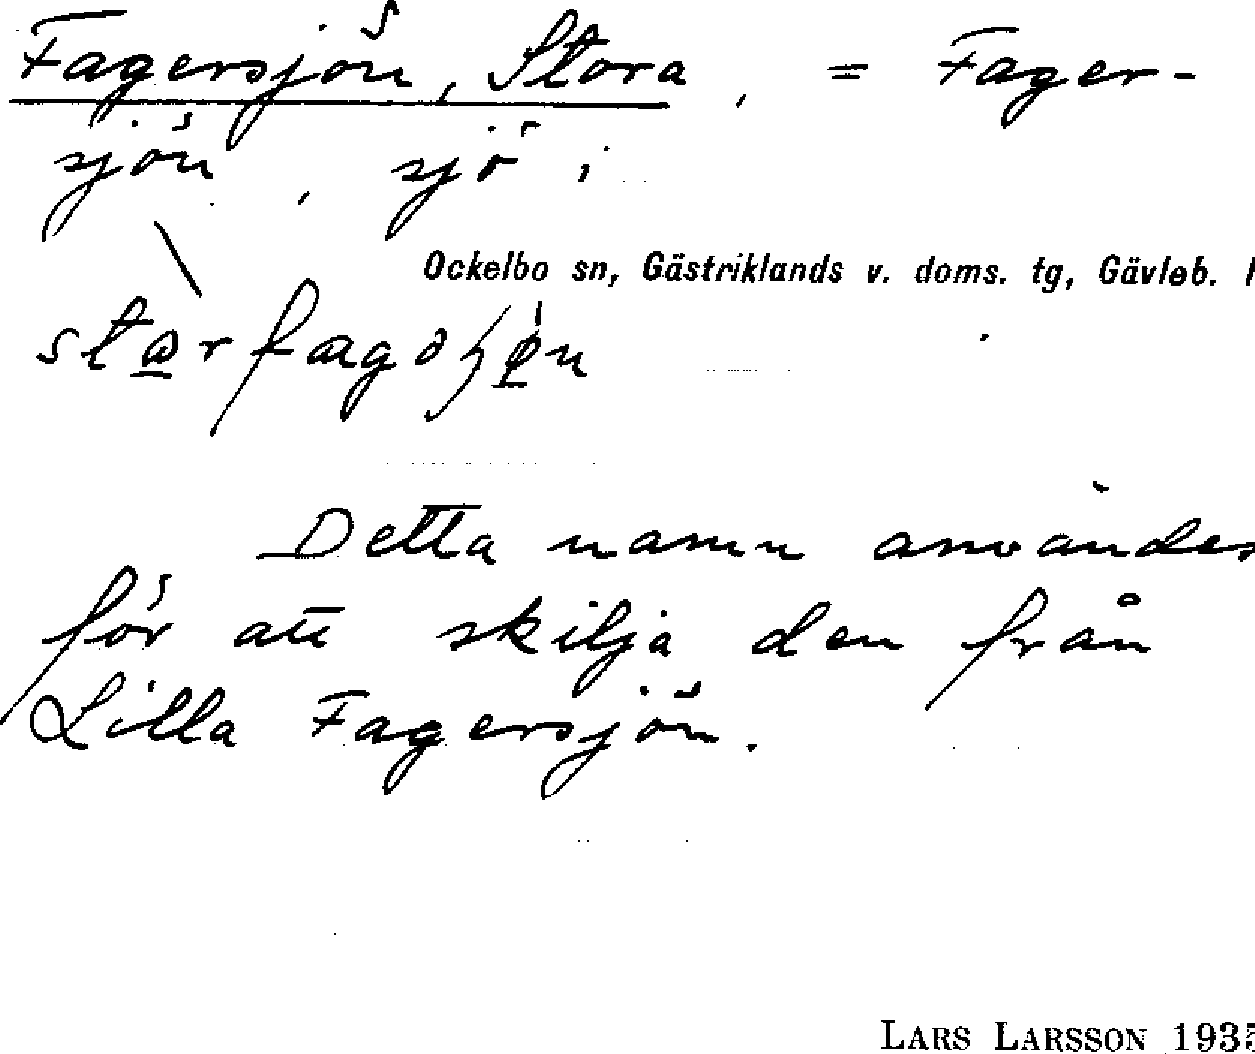 Fagersjön, Stora, = Fager-
sjön, sjö i
Ockelbo sn, Gästriklands v. doms. tg, Gävleb. l
Detta namn användes
för att skilja den från
Lilla Fagersjön.
LARS LARSSON 1935